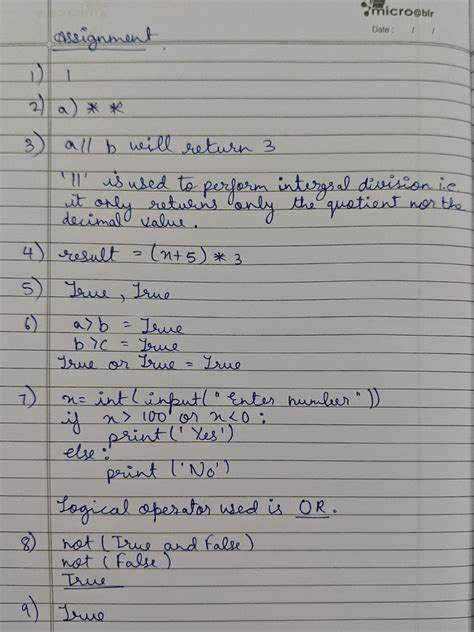 micro@blr
Date : / /
Assignment
1) 1
2) a) * *
3) a// b will return 3
'//' is used to perform intergral division i.e
it only returns only the quotient not the
decimal value.
4) result = (n+5) * 3
5) True, True
6) a>b = True
b>c = True
True or True = True
7) n= int(input("Enter number"))
if n> 100 or n<0 :
print('Yes')
else:
print ('No')
Logical operator used is OR.
8) not (True and False)
not (False)
True
9) True